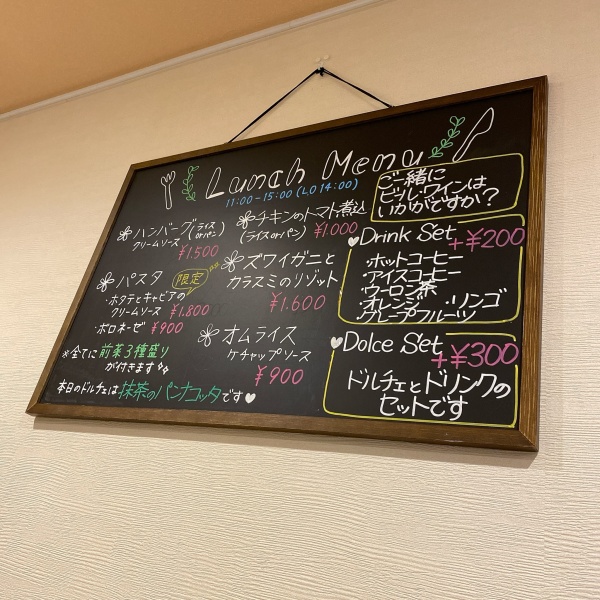 Lunch Menu
11:00-15:00 (LO 14:00)
ハンバーグ(ライス orパン)
クリームソース
¥1.500
チキンのトマト煮込
(ライスorパン) ¥1.000
パスタ 限定
・ホタテとキャビアの
クリームソース ¥1.800
・ボロネーゼ ¥900
ズワイガニと
カラスミのリゾット
¥1.600
オムライス
ケチャップソース
¥900
※全てに前菜3種盛り
が付きます
本日のドルチェは抹茶のパンナコッタです♥
ご一緒に
ビール・ワインは
いかがですか?
♥Drink Set +¥200
・ホットコーヒー
・アイスコーヒー
・ウーロン茶
・オレンジ ・リンゴ
・グレープフルーツ
♥Dolce Set +¥300
ドルチェとドリンクの
セットです